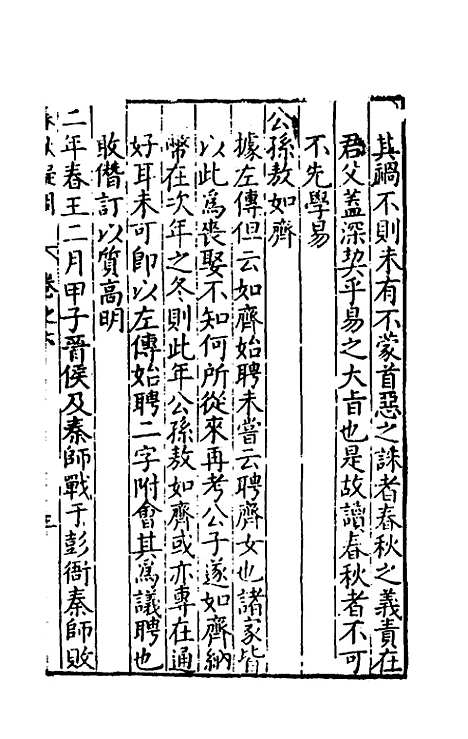 其禍不則未有不蒙首惡之誅者春秋之義責在
君父蓋深契乎易之大旨也是故讀春秋者不可
不先學易
公孫敖如齊
據左傳但云如齊始聘未嘗云聘齊女也諸家皆
以此爲喪娶不知何所從來再考公子遂如齊納
幣在次年之冬則此年公孫敖如齊或亦專在通
好耳未可即以左傳始聘二字附會其爲議聘也
敢僭訂以質高明
二年春王二月甲子晉侯及秦師戰于彭衙秦師敗
春秋疑問 卷之六